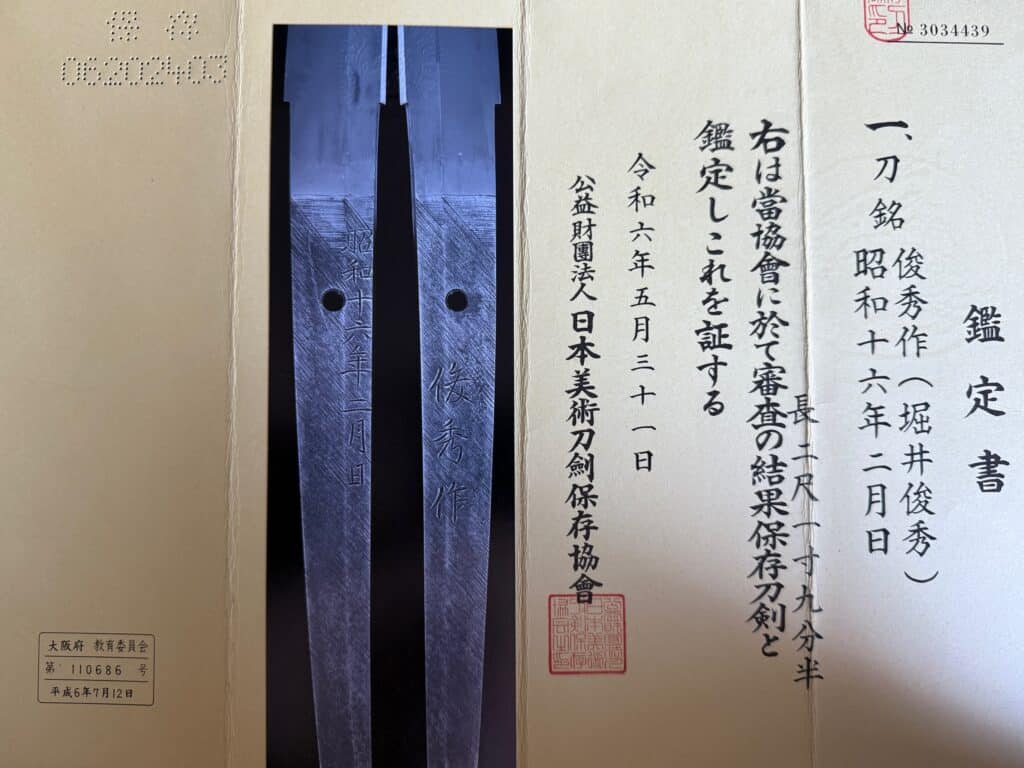 № 3034439
鑑定書
一、刀 銘 俊秀作(堀井俊秀)
昭和十六年二月日
長二尺一寸九分半
右は當協會に於て審査の結果保存刀剣と
鑑定しこれを証する
令和六年五月三十一日
公益財團法人日本美術刀劍保存協會
俊秀作
昭和十六年二月日
保存
06202403
大阪府 教育委員会
第 110686 号
平成6年7月12日